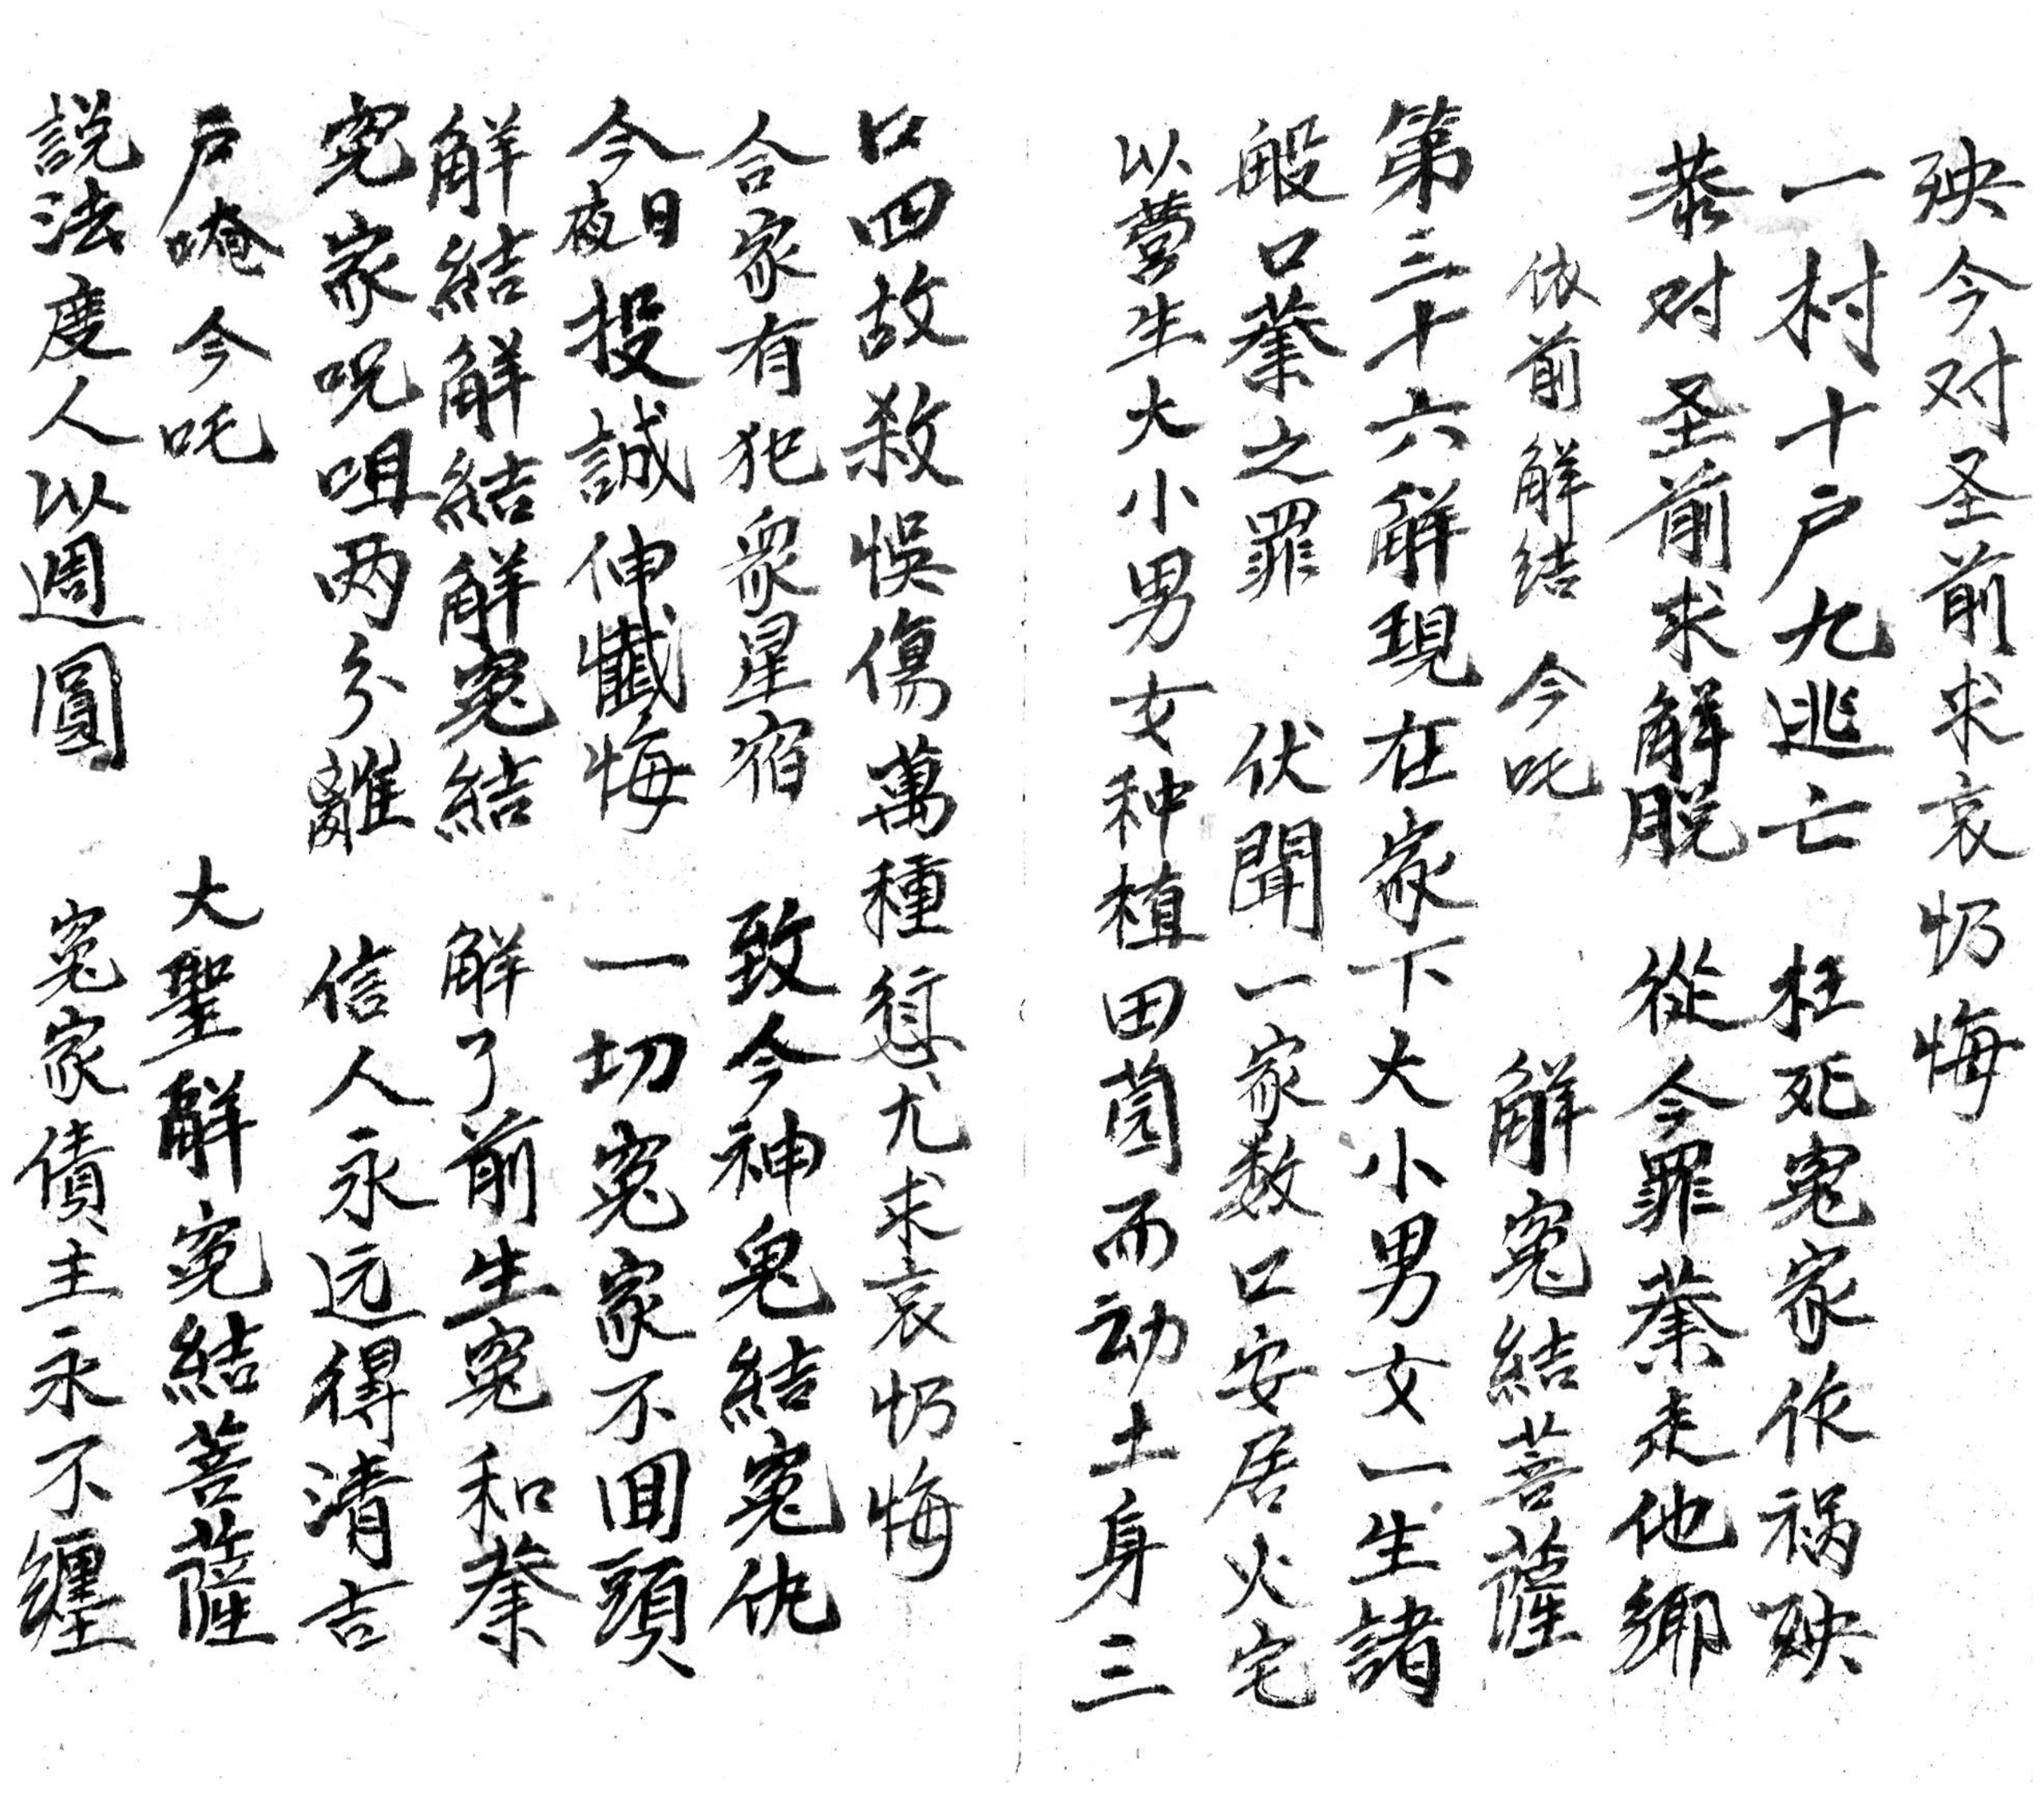 殃今对圣前求哀忉悔
一村十户九逃亡　枉死寃家作祸殃
恭对圣前求解脱　從今罪業走他鄉
依前解结　今吒　解寃結菩薩
第三十六解現在家下大小男女一生諸
般口業之罪　伏聞一家数口安居火宅
以营生大小男女种植田茵而动土身三
口四故殺悞傷萬種愆尤求哀忉悔
合家有犯衆星宿　致今神鬼結寃仇
今日夜投誠伸懺悔　一切寃家不回頭
解結解結解寃結　解了前生寃和業
寃家呪咀两分離　信人永远得清吉
戶唵今吒　大聖解寃結菩薩
説法度人以週圓　寃家債主永不纏